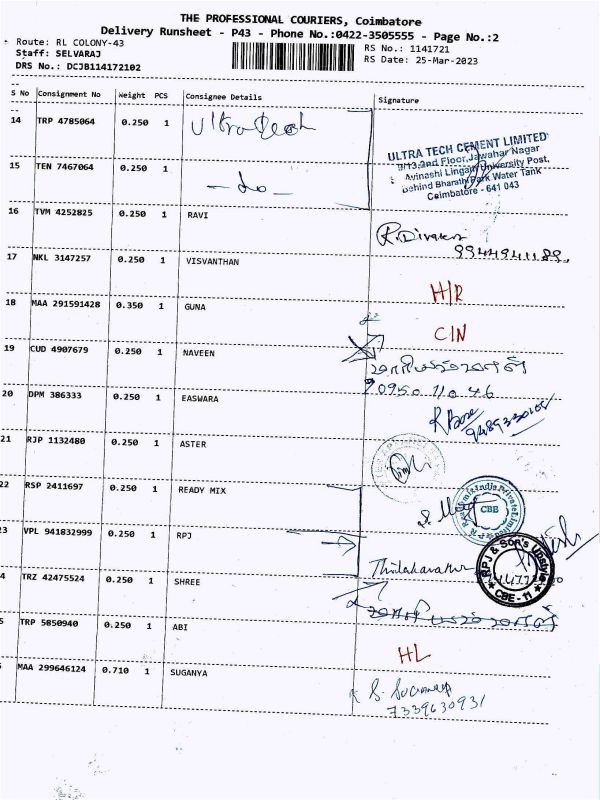 THE PROFESSIONAL COURIERS, Coimbatore
Delivery Runsheet - P43 - Phone No.:0422-3505555 - Page No.:2
Route: RL COLONY-43
RS No.: 1141721
Staff: SELVARAJ
RS Date: 25-Mar-2023
DRS No.: DCJB114172102
S No Consignment No Weight PCS Consignee Details Signature
14 TRP 4785064 0.250 1 Ultra Tech
ULTRA TECH CEMENT LIMITED
9/13, 2nd Floor, Jawahar Nagar
Avinashi Lingam University Post,
Behind Bharathi Park Water Tank
Coimbatore - 641 043
15 TEN 7467064 0.250 1 - do -
16 TVM 4252825 0.250 1 RAVI
9944941189
17 NKL 3147257 0.250 1 VISVANTHAN H/R
18 MAA 291591428 0.350 1 GUNA C/N
19 CUD 4907679 0.250 1 NAVEEN
20 DPM 386333 0.250 1 EASWARA
21 RJP 1132480 0.250 1 ASTER
22 RSP 2411697 0.250 1 READY MIX
CBE
3 VPL 941832999 0.250 1 RPJ
RPJ & Son's
CBE - 11
4 TRZ 42475524 0.250 1 SHREE
5 TRP 5850940 0.250 1 ABI HL
MAA 299646124 0.710 1 SUGANYA
7339630931